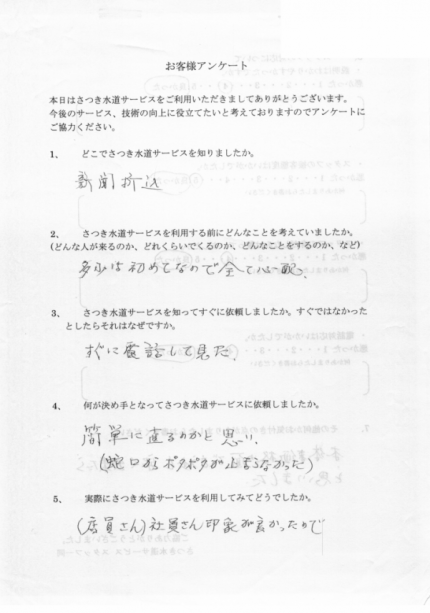 お客様アンケート
本日はさつき水道サービスをご利用いただきましてありがとうございます。
今後のサービス、技術の向上に役立てたいと考えておりますのでアンケートに
ご協力ください。
1、 どこでさつき水道サービスを知りましたか。
新聞折込
2、 さつき水道サービスを利用する前にどんなことを考えていましたか。
(どんな人が来るのか、どれくらいでくるのか、どんなことをするのか、など)
初めてなので全て心配、
3、 さつき水道サービスを知ってすぐに依頼しましたか。すぐではなかった
としたらそれはなぜですか。
すぐに電話して見た。
4、 何が決め手となってさつき水道サービスに依頼しましたか。
簡単に直るのかと思い、
(蛇口からポタポタが止まらなかった)
5、 実際にさつき水道サービスを利用してみてどうでしたか。
(店員さん)社員さん印象が良かったので